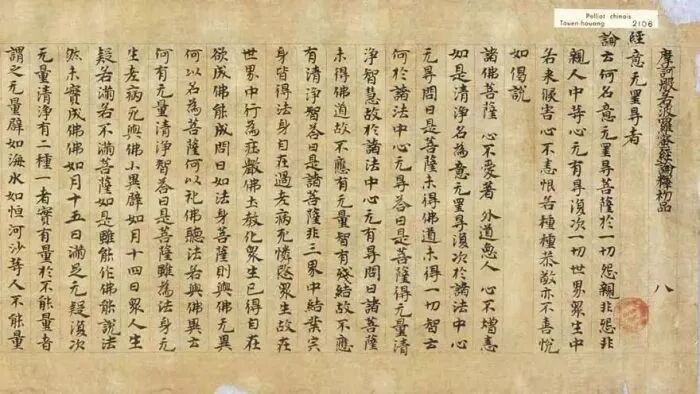 Pelliot chinois
Touen-houang 2106
摩訶般若波羅蜜經論釋初品 八
經 意无罣㝵者
論 云何名意无罣㝵菩薩於一切怨親非怨非
親人中等心无有㝵復次一切世界眾生中
若来侵害心不恚恨若種種恭敬亦不喜悅
如偈說
諸佛菩薩 心不愛著 外道惡人 心不憎恚
如是清淨名為意无罣㝵復次於諸法中心
无㝵問曰是菩薩未得佛道未得一切智云
何於諸法中心无㝵荅曰是菩薩得无量清
淨智慧故於諸法中心无有㝵問曰諸菩薩
未得佛道故不應有无量智有殘結故不應
有清淨智荅曰是諸菩薩非三界中結業宍
身皆得法身自在過老病死憐愍眾生故在
世界中行為莊嚴佛土教化眾生已得自在
欲成佛能成問曰如法身菩薩則與佛无異
何以名為菩薩何以礼佛聽法若與佛異云
何有无量清淨智荅曰是菩薩雖為法身无
生老病死與佛小異辟如月十四日眾人生
疑若滿若不滿菩薩如是雖能作佛能說法
然未實成佛佛如月十五日滿足无疑復次
无量清淨有二種一者實有量於不能量者
謂之无量辟如海水如恒河沙等人不能量